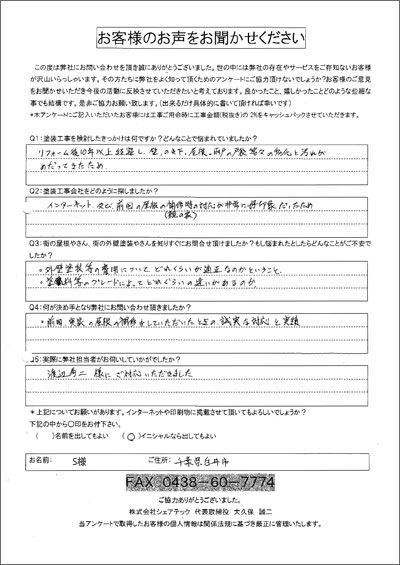 お客様のお声をお聞かせください
この度は弊社にお問い合わせを頂き誠にありがとうございました。世の中には弊社の存在やサービスをご存知ないお客様
が沢山いらっしゃいます。その方たちに弊社をよく知って頂くためのアンケートにご協力頂けないでしょうか？お客様のご意見
をお聞かせいただき今後の活動に反映させていただきたいと考えております。良かったこと、嬉しかったことどのような些細な
事でも結構です。是非ご協力お願い致します。（出来るだけ具体的に書いて頂ければ幸いです）
*本アンケートにご記入いただいたお客様には工事ご用命時に工事金額(税抜き)の2%をキャッシュバックさせていただきます。
Q1：塗装工事を検討したきっかけは何ですか？どんなことで悩まれていましたか？
リフォーム後10年以上経過し、壁、のき下、屋根、雨戸の戸袋等々の劣化と汚れが
めだってきたため
Q2：塗装工事会社をどのように探しましたか？
インターネット、及び、前回の屋根の補修時の対応が非常に好印象だったため
(親の家)
Q3：街の屋根やさん、街の外壁塗装やさんを知りすぐにお問合せ頂けましたか？もし悩まれたとしたらどんなことがご不安で
したか？
○外壁塗装等の費用について、どれくらいが適正なのかということ。
○塗料等のグレードによってどれぐらいの違いがあるのか
Q4：何が決め手となり弊社にお問い合わせ頂けましたか？
○前回、実家の屋根の補修をしていただいたときの誠実な対応と実績
Q5：実際に弊社担当者がお伺いしていかがでしたか？
様にご対応いただきました
*上記についてお願いがあります。インターネットや印刷物に掲載させて頂いてもよろしいでしょうか？
下記の中から〇印をお付下さい。
（　）名前を出してもよい　（〇）イニシャルなら出してもよい
お名前：　S様　ご住所：　千葉県白井市
FAX 0438-60-7774
ご協力ありがとうございました。
株式会社シェアテック 代表取締役 大久保 誠二
当アンケートで取得したお客様の個人情報は関係法規に基づき厳正に管理いたします。